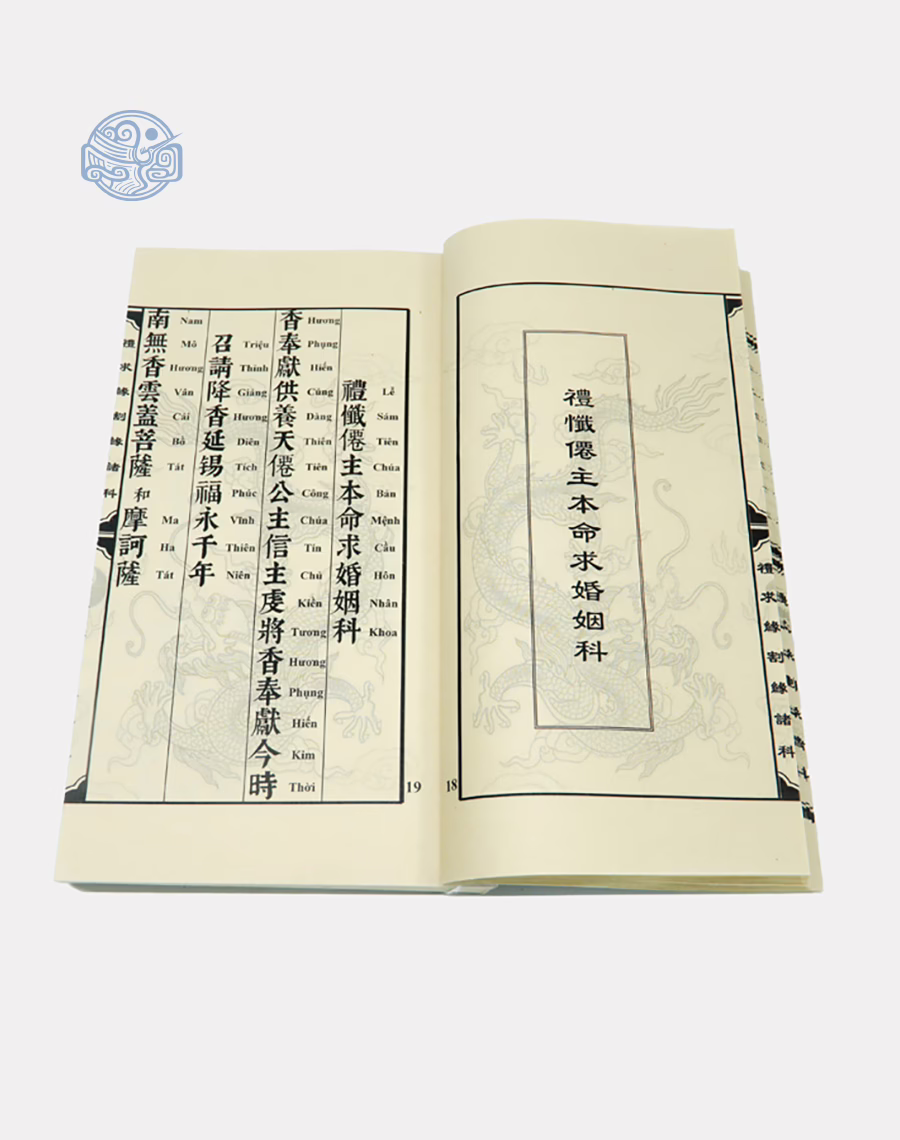 禮懺僊主本命求婚姻科
18
禮求緣割緣諸科
禮懺僊主本命求婚姻科
Lễ Sám Tiên Chúa Bản Mệnh Cầu Hôn Nhân Khoa
香奉獻供養天僊公主信主虔將香奉獻今時
Hương Phụng Hiến Cúng Dàng Thiên Tiên Công Chúa Tín Chủ Kiền Tương Hương Phụng Hiến Kim Thời
召請降香延錫福永千年
Triệu Thỉnh Giáng Hương Diên Tích Phúc Vĩnh Thiên Niên
南無香雲蓋菩薩和摩訶薩
Nam Mô Hương Vân Cái Bồ Tát Ma Ha Tát
禮求緣割緣諸科
19